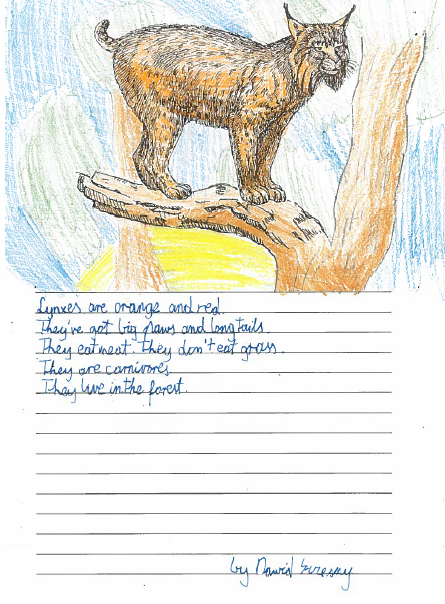 Lynxes are orange and red.
They've got big paws and long tails.
They eat meat. They don't eat grass.
They are carnivores.
They live in the forest.
by Dawid